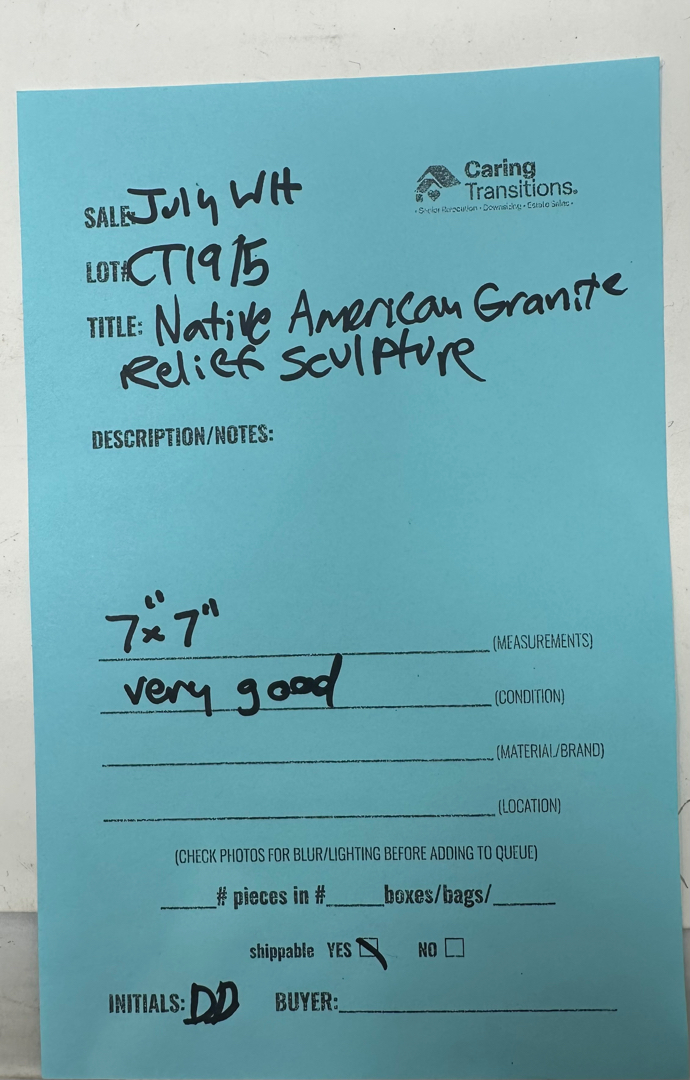 Caring
Transitions®
• Senior Relocation • Downsizing • Estate Sales •
SALE: July WH
LOT# CT1915
TITLE: Native American Granite
Relief Sculpture
DESCRIPTION/NOTES:
7" x 7" (MEASUREMENTS)
very good (CONDITION)
(MATERIAL/BRAND)
(LOCATION)
(CHECK PHOTOS FOR BLUR/LIGHTING BEFORE ADDING TO QUEUE)
# pieces in # boxes/bags/
shippable YES NO
INITIALS: DD BUYER: